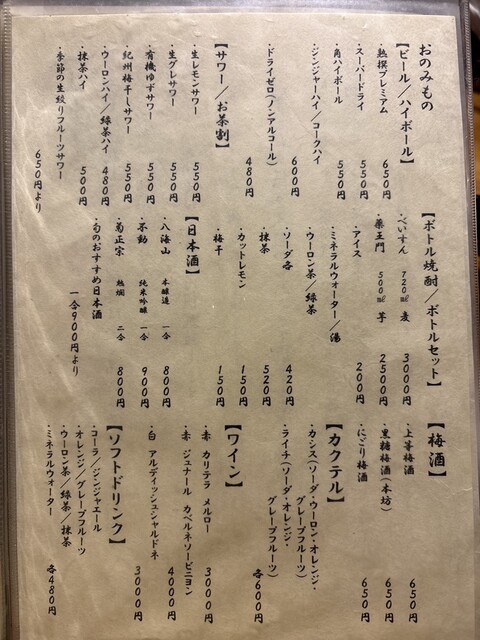 おのみもの
【ビール／ハイボール】
・熟撰プレミアム 650円
・スーパードライ 550円
・角ハイボール 550円
・ジンジャーハイ／コークハイ 600円
・ドライゼロ（ノンアルコール） 480円
【サワー／お茶割】
・生レモンサワー 550円
・生グレサワー 550円
・有機ゆずサワー 550円
・紀州梅干しサワー 550円
・ウーロンハイ／緑茶ハイ 480円
・抹茶ハイ 500円
・季節の生絞りフルーツサワー 650円より
【ボトル焼酎／ボトルセット】
・べいすん 720㎖ 麦 3000円
・薬王門 500㎖ 芋 2500円
・アイス 200円
・ミネラルウォーター／湯
・ウーロン茶／緑茶
・ソーダ各 420円
・抹茶 520円
・カットレモン 150円
・梅干 150円
【日本酒】
・八海山 本醸造 一合 800円
・不動 純米吟醸 一合 900円
・菊正宗 熱燗 二合 800円
・旬のおすすめ日本酒 一合900円より
【梅酒】
・上等梅酒 650円
・黒糖梅酒（本坊） 650円
・にごり梅酒 650円
【カクテル】
・カシス（ソーダ・ウーロン・オレンジ・
グレープフルーツ）
・ライチ（ソーダ・オレンジ・
グレープフルーツ） 各600円
【ワイン】
・赤 カリテラ メルロー 3000円
・赤 ジュナール カベルネソービニヨン 4000円
・白 アルディッシュシャルドネ 3000円
【ソフトドリンク】
・コーラ／ジンジャエール
・オレンジ／グレープフルーツ
・ウーロン茶／緑茶／抹茶
・ミネラルウォーター 各480円